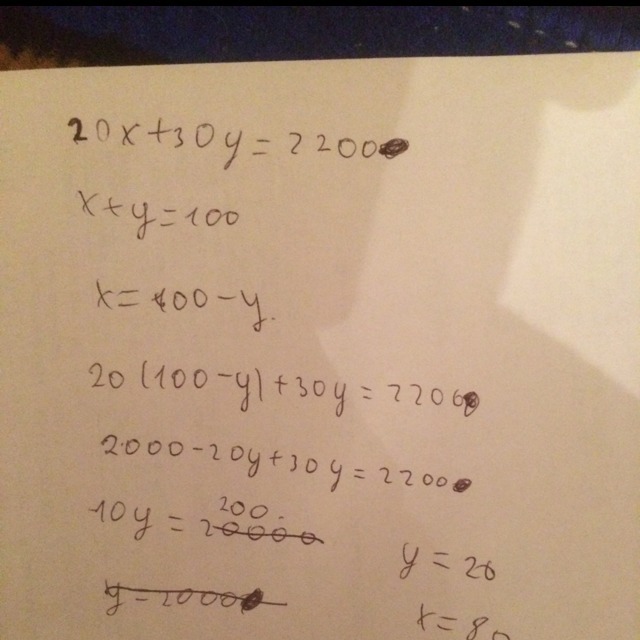 20x+30y=2200
x+y=100
x=100-y.
20(100-y)+30y=2200
2000-20y+30y=2200
10y=200.
y=20
x=80